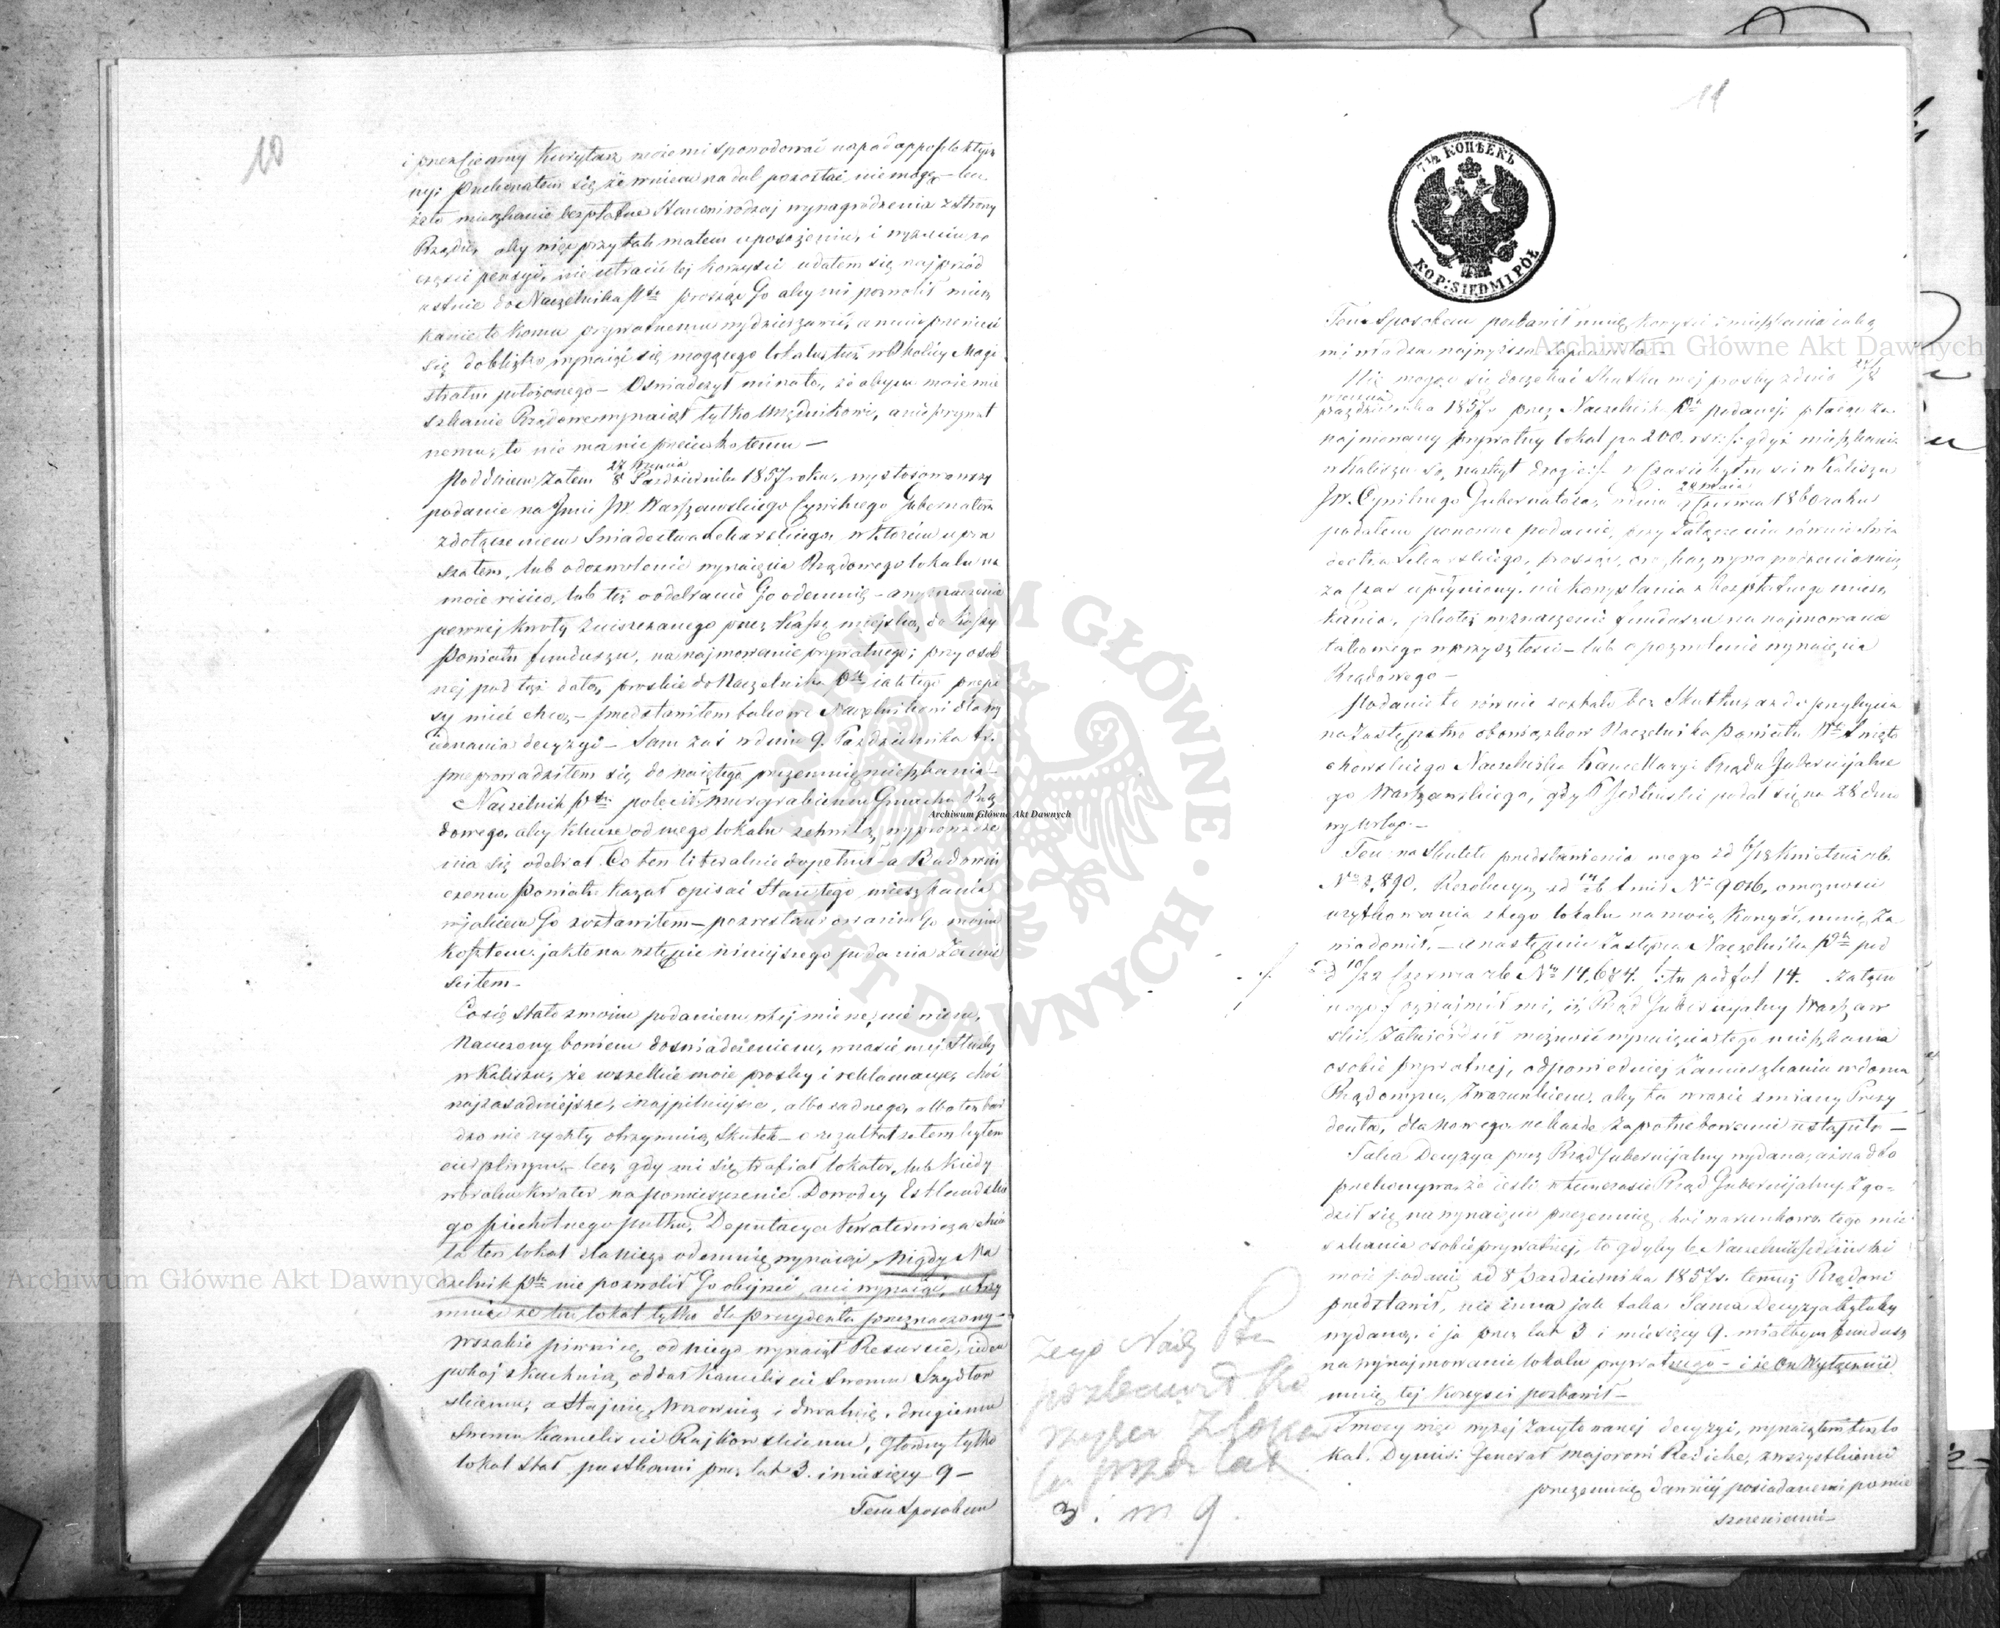 10
i przez ciemny Kurytarz może mi sponodować napad appoplektycz
ny; przekonałem się że w niem nadal pozostać nie mogę – lecz
że to mieszkanie bezpłatne stanowi rodzaj wynagrodzenia z strony
Rządu, aby więc przy tak małem uposażeniu, i
części pensyi, nie utracić tej korzyści udałem się najprzód
ustnie do Naczelnika Ptu prosząc Go aby mi pozwolił miesz
kanie to komu prywatnemu wydzierżawić, a mnie przenieść
się do blizko wynaiąć się mogącego lokalu, tuż w okolicy Magi
stratu położonego – Oświadczył mi na to, że abym moie mie
szkanie Rządowe wynaiął tylko Urzędnikowi, a nie prywat
nemu, to nie ma nic przeciwko temu –
Pod dniem zatem 8 Października 1857 roku, wystosowawszy
podanie na Imie JW. Warszawskiego Cywilnego Gubernatora
z dołączeniem Świadectwa Lekarskiego, w którem upra
szałem, lub o dozwolenie wynaięcia Rządowego lokalu na
moie risico, lub też o odebranie Go odemnie – a wyznaczenie
pewnej kwoty uiszczanego przez Kassę miejską do Kassy
Powiatu funduszu, na najmowanie prywatnego; przy osob
nej pod tąż datą, prośbie do Naczelnika Ptu iak tego przepi
sy mieć chcą, – przedstawiłem takowe Naczelnikowi dla wy
iednania decyzyi – Sam zaś w dniu 9. Października t.r.
przeprowadziłem się do naiętego przezemnie mieszkania –
Naczelnik Ptu polecił Gmachu Rzą
dowego, aby klucze od mego lokalu z chwilą wyprowadze
nia się odebrał. Co ten literalnie dopełnił – a Budowni
czemu Powiatu kazał opisać Stan tego mieszkania
w jakiem Go zostawiłem – pozostaw
kosztem jak to na wstępie niniejszego podania zamie
ściłem –
Co się stało z moim podaniem wtej mierze, nie wiem,
Nauczony bowiem doświadczeniem, w czasie mej Służby
w Kaliszu, że wszelkie moie prośby i reklamacye, choć
najzasadniejsze, i najpilniejsze, albo żadnego, albo też bar
dzo nie rychły otrzymują Skutek – o rezultat zatem byłem
cierpliwym – lecz gdy mi się trafiał lokator, lub kiedy
w braku kwater, na pomieszczenie Dowodcy Estlandzkie
go piechotnego pułku, Deputacya Kwaternicza chcia
ła ten lokal dla niego odemnie wynaiąć, nigdy Na
czelnik Ptu nie pozwolił Go obiąć, ani wynaiąć, utrzy
muiąc że ten lokal tylko dla Prezydenta przeznaczony –
Wszakże piwnicę od niego wynaiął Resursie, ieden
pokój z kuchnią, oddał Kancelliście Swemu Szydłow
skiemu, a Stajnię, Wozownią i drwalnię, drugiemu
Swemu Kancelliście Rajkowskiemu, główny tylko
lokal Stał pustkami przez lat 3. i miesięcy 9 –
Tem sposobem
11
7½ КОПѢЕКЪ
KOP: SIEDM I PÓŁ
Tem sposobem pozbawił mnie korzyści z mieszkania iaką
mi władza najwyższa zapewniła –
Nie mogąc się doczekać Skutku mej prośby z dnia
października 1857 r. przez Naczelnika Ptu podanej, płacąc za
najmowany prywatny lokal po 200. rs. gdyż mieszkania
w Kaliszu są nazbyt drogie w czasie bytności w Kaliszu
JW. Cywilnego Gubernatora, dnia Czerwca 1860 roku
podałem ponowne podanie, przy załączeniu również Świa
dectwa Lekarskiego, prosząc o wynagrodzenie mię
za czas upłyniony, nie korzystania z bezpłatnego miesz
kania, jakoteż wyznaczenie funduszu na najmowanie
takowego w przyszłości – lub o pozwolenie wynaięcia
Rządowego –
Podanie to równie zostało bez Skutku, aż do przybycia
na zastępstwo obowiązków Naczelnika Powiatu
chowskiego Naczelnika Kancellaryi Rządu Gubernijalne
go Warszawskiego, gdy podał się na 28 dniowy
urlop. –
Ten na skutek przedstawienia mego z d Kwietnia r.b.
№ 2,890. Rezolucyą z d t.m. i r. № 9026, o możności
użytkowania z tego lokalu na moią korzyść, mnie za
wiadomił, – a następnie Zastępca Naczelnika Ptu pod
d 10/22 Czerwca r.b. № 14,684. /: tu pod fol 14. załącz
oznajmił mi, iż Rząd Gubernijalny Warszaw
ski, zatwierdził możność wynaięcia tego mieszkania
osobie prywatnej, odpowiedniej zamieszkania w domu
Rządowym, z warunkiem, aby ta w razie zmiany Prezy
denta, dla nowego na każde zapotrzebowanie ustąpiła –
Taka Decyzya przez Rząd Gubernijalny wydana, aż nadto
przekonywa, że jeśli w tym czasie Rząd Gubernijalny zgo
dził się na wynaięcie przezemnie, choć warunkowo tego mie
szkania osobie prywatnej, to gdyby b. Naczelnik Jedliński
moie podanie z d 8 Października 1857 r. temuż Rządowi
przedstawił, nie inna jak taka sama Decyzya byłaby
wydaną, i ja przez lat 3 i miesięcy 9. miałbym fundusz
na wynajmowanie lokalu prywatnego – i że On Wyłącznie
mnie tej korzyści pozbawił –
Z mocy więc wyżej zacytowanej decyzyi, wynaiąłem ten lo
kal. Dymiss: Generał Majorowi ze wszystkiemi
przezemnie dawniej posiadanemi pomie
szczeniami –
Jego Nacz Ptu
pozbawił ko
rzyści z loka
lu przez lat
3. m 9.
Archiwum Główne Akt Dawnych
Archiwum Główne Akt Dawnych
Archiwum Główne Akt Dawnych
ARCHIWUM GŁÓWNE AKT DAWNYCH